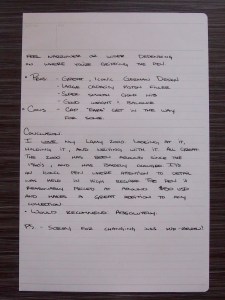 FEEL NARROWER OR WIDER DEPENDING
ON WHERE YOU'RE GRIPPING THE PEN
• PROS - GREAT, ICONIC GERMAN DESIGN
- LARGE CAPACITY PISTON FILLER
- SUPER SMOOTH GOLD NIB
- GOOD WEIGHT & BALANCE
• CONS - CAP "EARS" GET IN THE WAY
FOR SOME
CONCLUSION
I LOVE MY LAMY 2000. LOOKING AT IT,
HOLDING IT, AND WRITING WITH IT. ALL GREAT.
THE 2000 HAS BEEN AROUND SINCE THE
AN ICONIC PEN WHERE ATTENTION TO DETAIL
WAS HELD IN HIGH REGARD. THE PEN IS
REASONABLY PRICED AT AROUND USD
AND MAKES A GREAT ADDITION TO ANY
COLLECTION.
- WOULD RECOMMEND ABSOLUTELY.
PS - SORRY FOR CHANGING INKS MID-REVIEW!